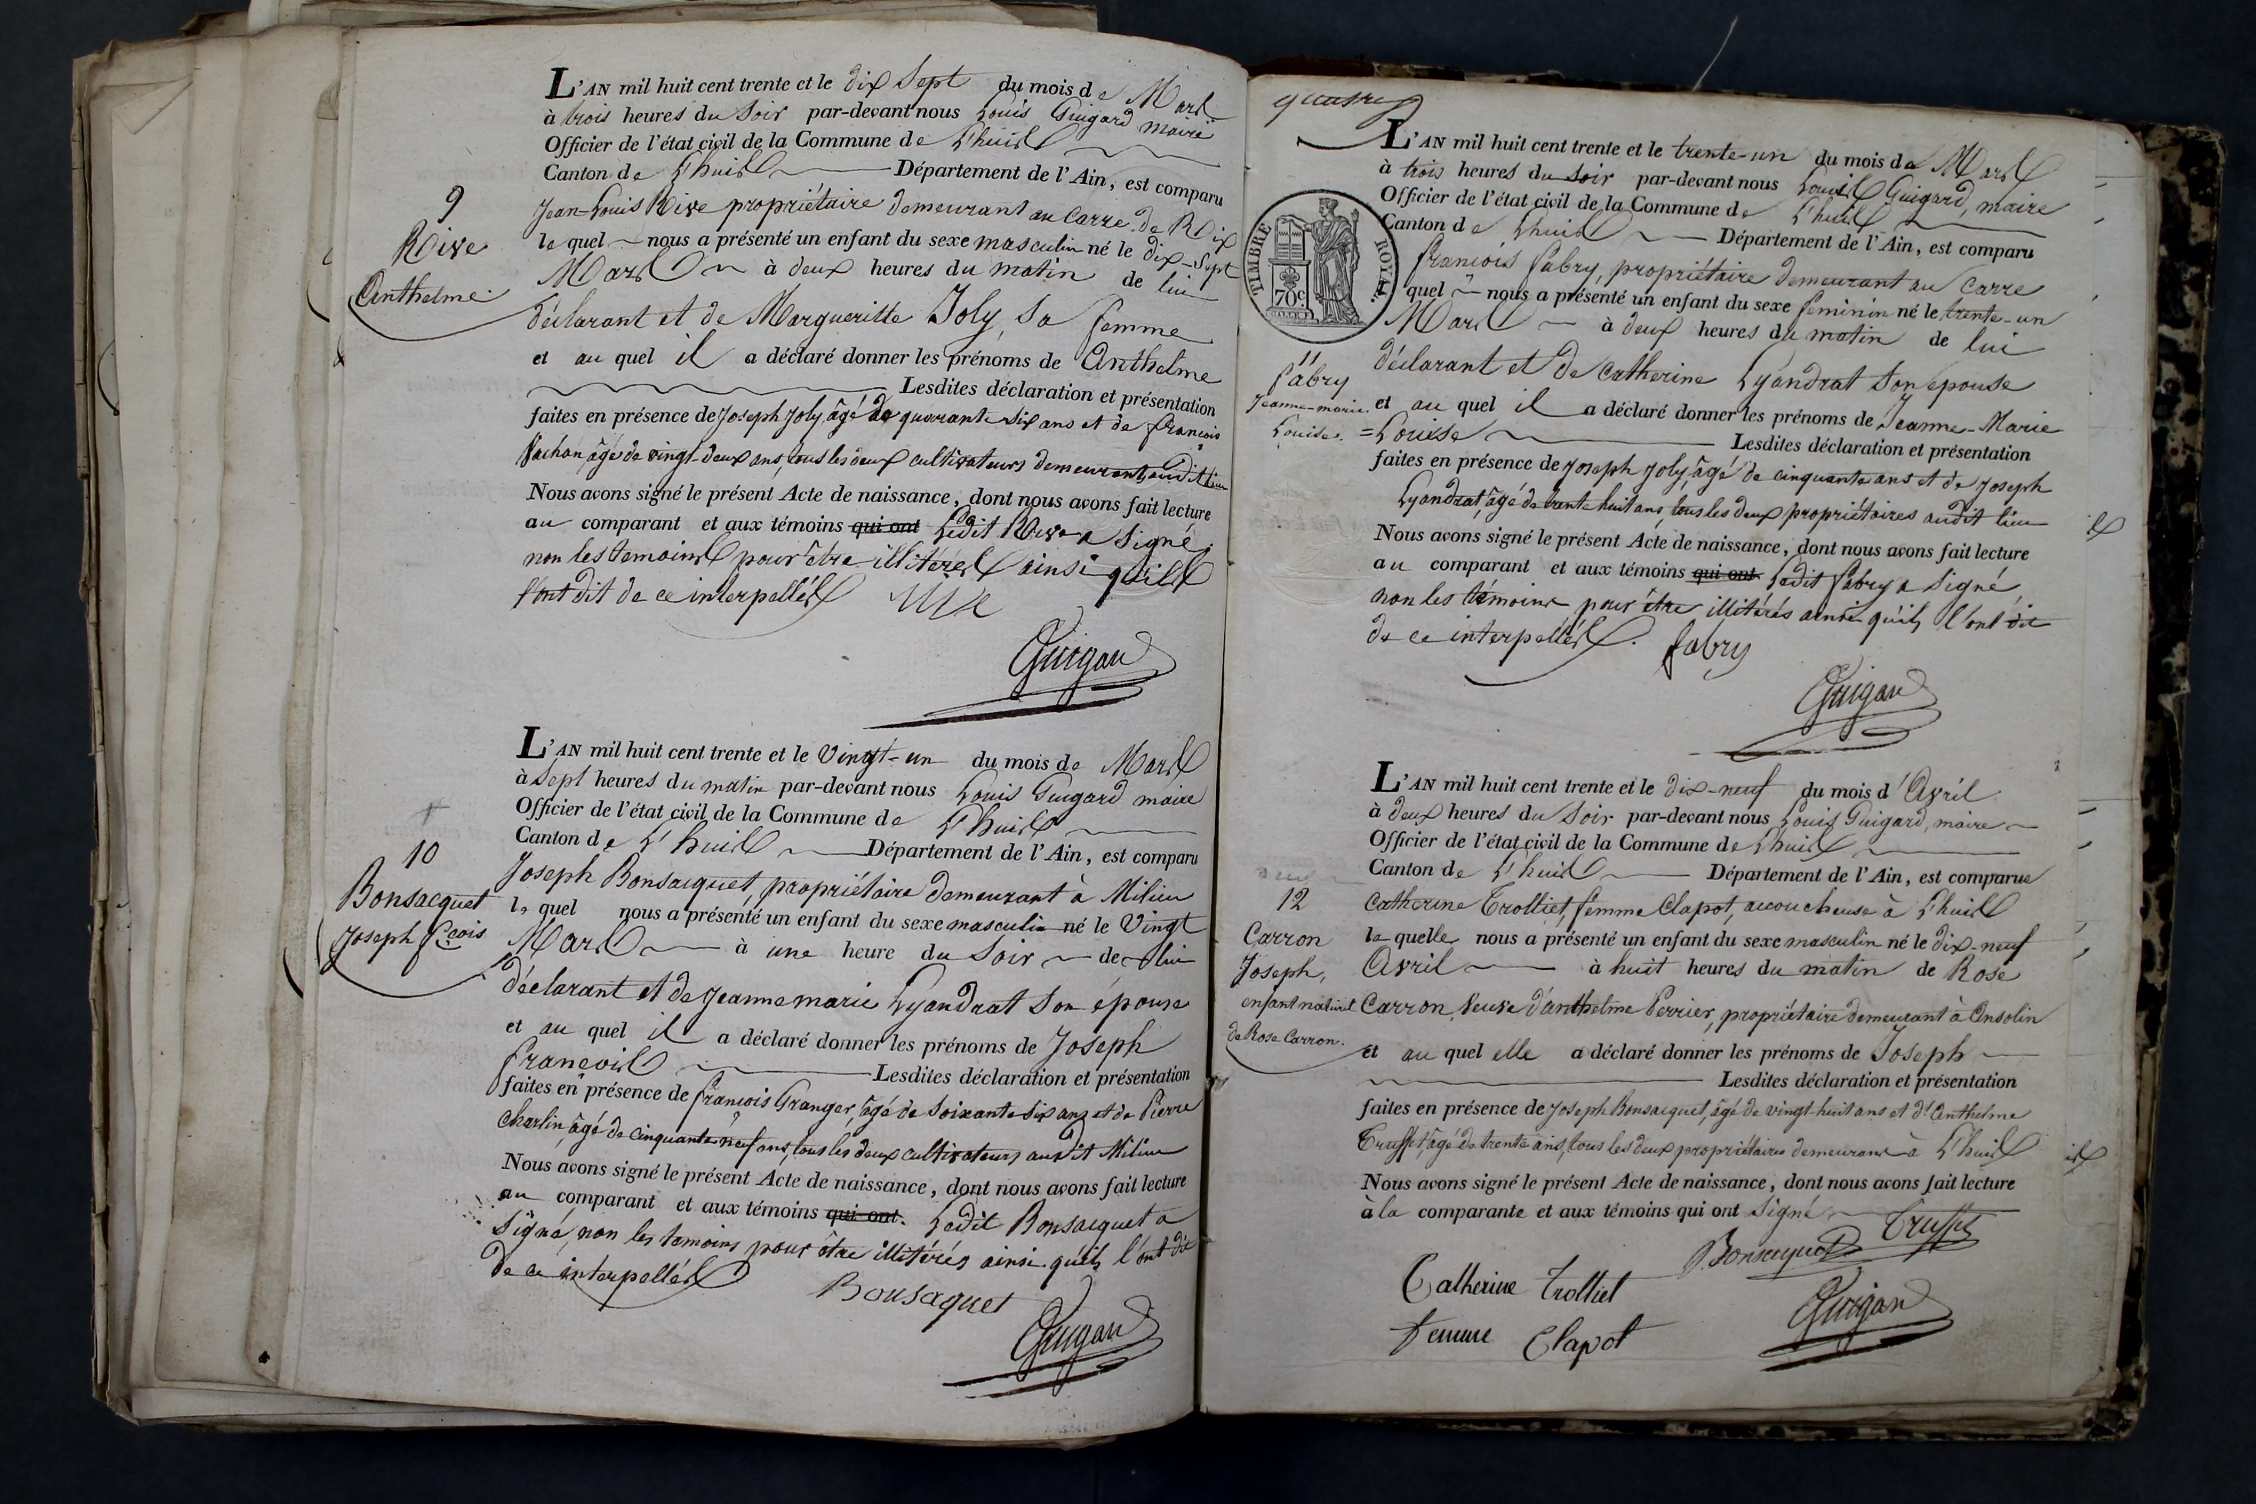 L'AN mil huit cent trente et le dix Sept du mois de Mars
à trois heures du Soir par-devant nous Louis Guigard maire
Officier de l'état civil de la Commune de L'huis
Canton de L'huis Département de l'Ain, est comparu
Jean-Louis Rive propriétaire demeurant au Carre de Rix
le quel nous a présenté un enfant du sexe masculin né le dix-Sept
Mars à deux heures du matin de lui
déclarant et de Margueritte Joly, Sa femme
et au quel il a déclaré donner les prénoms de Anthelme
Lesdites déclaration et présentation
faites en présence de Joseph Joly, âgé de quarante Six ans et de françois
Vachon, âgé de vingt-deux ans, tous les deux cultivateurs demeurants audit lieu
Nous avons signé le présent Acte de naissance, dont nous avons fait lecture
au comparant et aux témoins qui ont Ledit Rive a Signé
non les temoins pour être illitérés ainsi qu'ils
l'ont dit de ce interpellés
Guigard
9
Rive
Anthelme
L'AN mil huit cent trente et le Vingt-un du mois de Mars
à Sept heures du matin par-devant nous Louis Guigard maire
Officier de l'état civil de la Commune de L'huis
Canton de L'huis Département de l'Ain, est comparu
Joseph Bonsacquet, propriétaire demeurant à Milieu
le quel nous a présenté un enfant du sexe masculin né le Vingt
Mars à une heure du Soir de lui
déclarant et de Jeanne marie Lyandrat Son épouse
et au quel il a déclaré donner les prénoms de Joseph
françois Lesdites déclaration et présentation
faites en présence de françois Granger, âgé de Soixante Six ans et de Pierre
Charlin, âgé de cinquante neuf ans, tous les deux cultivateurs audit Milieu
Nous avons signé le présent Acte de naissance, dont nous avons fait lecture
au comparant et aux témoins qui ont. Ledit Bonsacquet a
Signé, non les temoins pour être illitérés ainsi qu'ils l'ont dit
de ce interpellés
Bonsaquet
Guigard
10
Bonsacquet
Joseph fcois
quatre
L'AN mil huit cent trente et le trente-un du mois de Mars
à trois heures du Soir par-devant nous Louis Guigard, maire
Officier de l'état civil de la Commune de L'huis
Canton de L'huis Département de l'Ain, est comparu
françois fabry, propriétaire demeurant au Carre
quel nous a présenté un enfant du sexe feminin né le trente-un
Mars à deux heures du matin de lui
déclarant et de Catherine Lyandrat Son epouse
et au quel il a déclaré donner les prénoms de Jeanne-Marie
=Louise Lesdites déclaration et présentation
faites en présence de Joseph Joly, âgé de cinquante ans et de Joseph
Lyandrat, âgé de trente huit ans, tous les deux propriétaires audit lieu
Nous avons signé le présent Acte de naissance, dont nous avons fait lecture
au comparant et aux témoins qui ont. Ledit fabry a Signé
non les témoins pour être illitérés ainsi qu'ils l'ont dit
de ce interpellés.
fabry
Guigard
TIMBRE ROYAL.
70c
11
fabry
Jeanne-marie
Louise.
L'AN mil huit cent trente et le dix-neuf du mois d'Avril
à deux heures du Soir par-devant nous Louis Guigard, maire
Officier de l'état civil de la Commune de L'huis
Canton de L'huis Département de l'Ain, est comparue
Catherine Trolliet, femme Clapot, accoucheuse à L'huis
la quelle nous a présenté un enfant du sexe masculin né le dix-neuf
Avril à huit heures du matin de Rose
Carron, Veuve d'anthelme Perrier, propriétaire demeurant à Ansolin
et au quel elle a déclaré donner les prénoms de Joseph
Lesdites déclaration et présentation
faites en présence de Joseph Bonsacquet, âgé de vingt-huit ans et d'Anthelme
Truffet, âgé de trente ans, tous les deux propriétaires demeurant à L'huis
Nous avons signé le présent Acte de naissance, dont nous avons fait lecture
à la comparante et aux témoins qui ont Signé
Bonsacquet Truffet
Catherine Trolliet
femme Clapot
Guigard
12
Carron
Joseph,
enfant naturel
de Rose Carron.